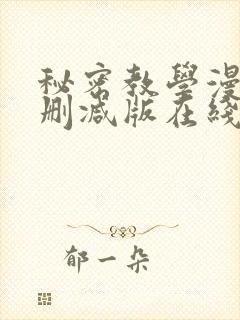 秘密教學漫
刪減版在綫
郁一朵